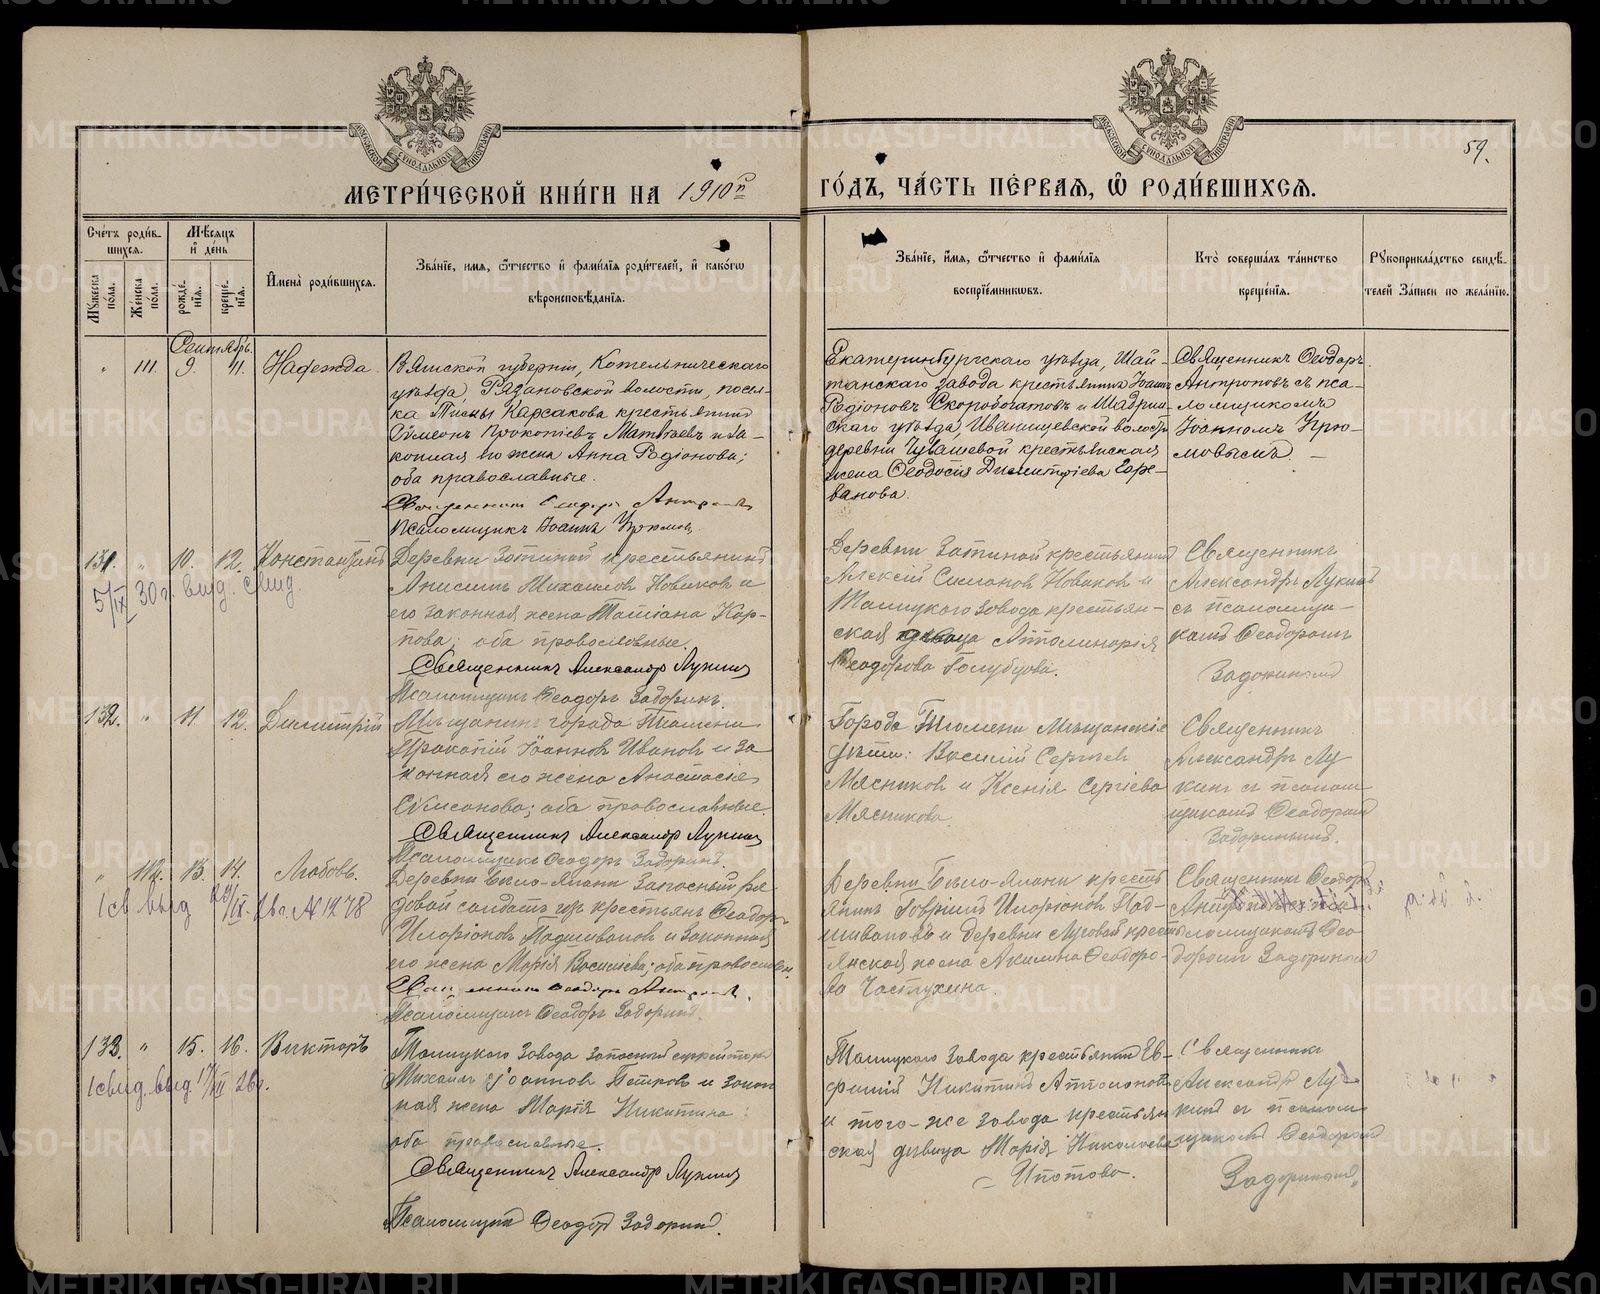 59.
МЕТРИ́ЧЕСКОЙ КНИ́ГИ НА 1910й ГО́ДЪ, ЧА́СТЬ ПЕ́РВАЯ, Ѡ РОДИ́ВШИХСЯ.
Сче́тъ роди́вшихся.
Мѣ́сяцъ и де́нь
Му́жеска по́ла.
Же́нска по́ла.
рожде́нїѧ.
креще́нїѧ.
Имена̀ роди́вшихсѧ.
Зва́нїе, имѧ, ѻ҆́тчество и фами́лїѧ роди́телей, и како́гѡ вѣроисповѣ́данїѧ.
Зва́нїе, и́мѧ, ѻ҆́тчество и фами́лїѧ воспрїе́мникѡвъ.
Кто̀ соверша́лъ та́инство креще́нїѧ.
Рꙋкоприкла́дство свидѣ́телей за́писи по жела́нїю.
Сентябрь.
" 111. 9. 11. Надежда.
Вятской губерніи, Котельническаго
уѣзда, Рязановской волости, посел-
ка Карсакова крестьянинъ
Сѵмеонъ Прокопіевъ Матвѣевъ и за-
конная его жена Анна Родіонова;
оба православные.
Священникъ Ѳеодоръ Антроповъ
Псаломщикъ Іоаннъ
Екатеринбургскаго уѣзда, Шай-
танскаго завода крестьянинъ Іоаннъ
Родіоновъ Скоробогатовъ и Шадрин-
скаго уѣзда, Иванищевской волости
деревни Чувашевой крестьянская
жена Ѳеодосія Димитріева
Священникъ Ѳеодоръ
Антроповъ съ пса-
ломщикомъ
Іоанномъ
131. " 10. 12. Константинъ
5/IX 30 г. выд. свид.
Деревни крестьянинъ
Анисимъ Михаиловъ Новиковъ и
его законная жена Татіана Кар-
пова; оба православные.
Священникъ Александръ Лукинъ
Псаломщикъ Ѳеодоръ Задоринъ.
Деревни крестьянинъ
Алексій Новиковъ и
Талицкаго завода крестьян-
ская дѣвица Апполинарія
Ѳеодорова Голубцова.
Священникъ
Александръ Лукинъ
съ псаломщи-
комъ Ѳеодоромъ
Задоринымъ
132. " 11. 12. Димитрій
Мѣщанинъ города Тюмени
Прокопій Іоанновъ Ивановъ и за-
конная его жена Анастасія
Сѵмеонова; оба православные.
Священникъ Александръ Лукинъ
Псаломщикъ Ѳеодоръ Задоринъ.
Города Тюмени мѣщанскія
дѣти: Василій Сергѣевъ
Мясниковъ и Ксенія Сергіева
Мясникова
Священникъ
Александръ Лу-
кинъ съ псалом-
щикомъ Ѳеодоромъ
Задоринымъ.
" 112. 13. 14. Любовь.
1 св. выд IX. 26 г. № 1278
Деревни Бѣло-Яланы запасный ря-
довой солдатъ изъ крестьянъ Ѳеодоръ
Иларіоновъ Подшиваловъ и законная
его жена Марія Василіева; оба православн.
Священникъ Ѳеодоръ Антроповъ.
Псаломщикъ Ѳеодоръ Задоринъ.
Деревни Бѣло-Яланы кресть-
янинъ Гавріилъ Иларіоновъ Под-
шиваловъ и деревни Луговой кресть-
янская жена Акилина Ѳеодоро-
ва Частухина.
Священникъ Ѳеодоръ
ломщикомъ Ѳео-
доромъ Задоринымъ
133. " 15. 16. Викторъ
1 свид. выд. XII 26 г.
Талицкаго завода запасный ефрейторъ
Михаилъ Іоанновъ Петровъ и закон-
ная жена Марія Никитина;
оба православные.
Священникъ Александръ Лукинъ
Псаломщикъ Ѳеодоръ Задоринъ.
Талицкаго завода крестьянинъ Ев-
фимій Никитинъ
и того-же завода крестьян-
ская дѣвица Марія Николаева
Ипотова.
Священникъ
Александръ Лу-
кинъ съ псалом-
щикомъ Ѳеодоромъ
Задоринымъ.
METRIKI.GASO-URAL.RU